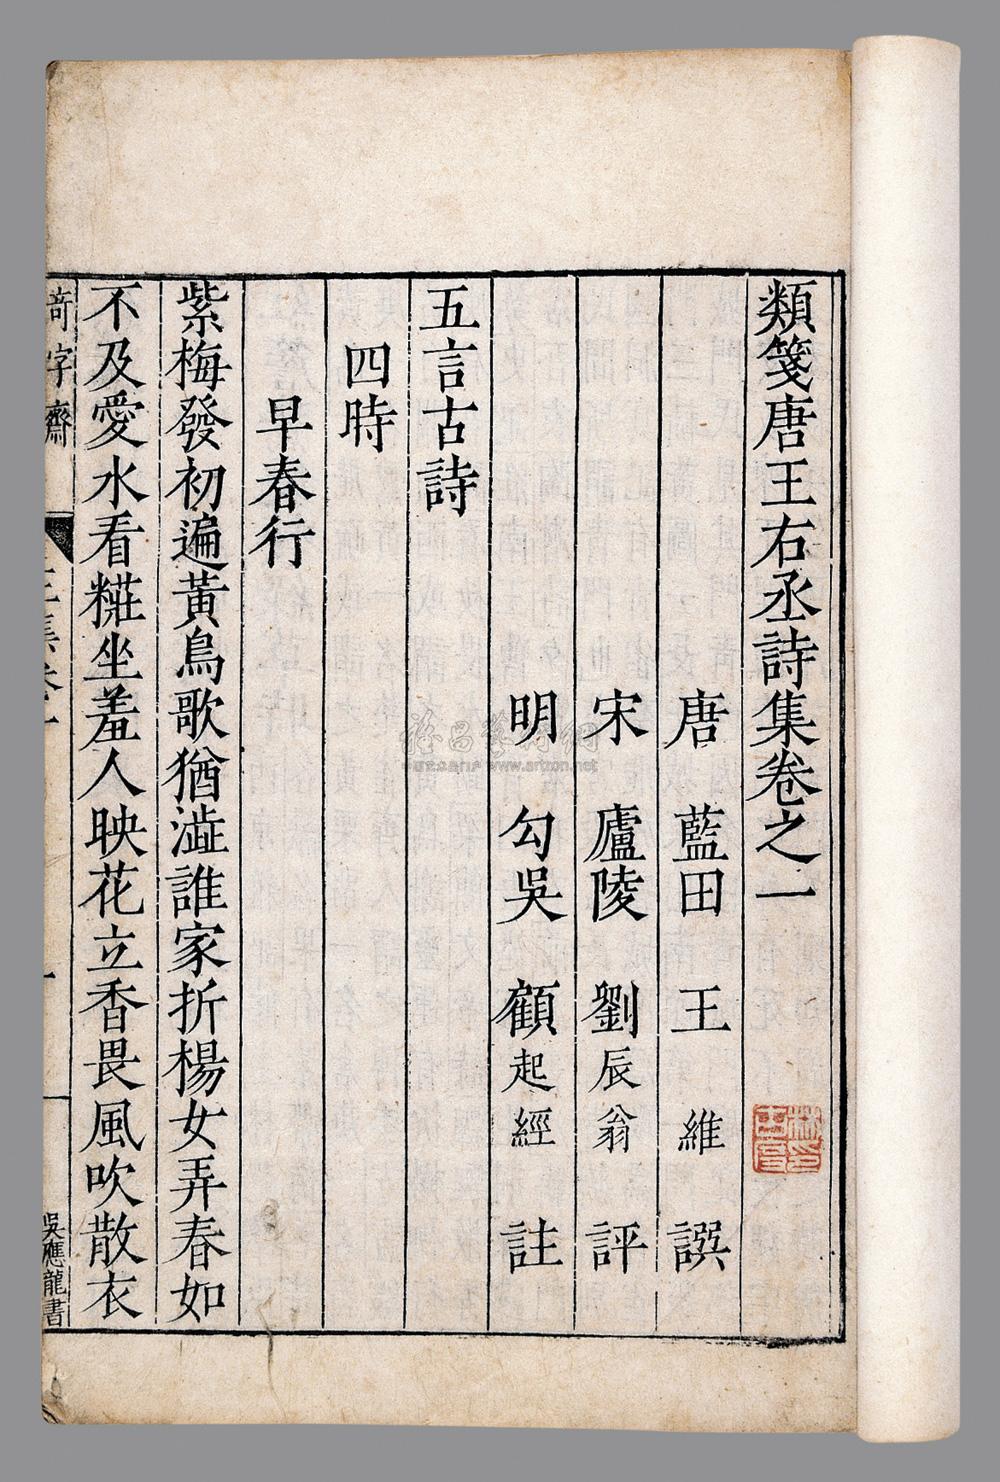 類箋唐王右丞詩集卷之一
唐 藍田 王維 譔
宋 廬陵 劉辰翁 評
明 勾吳 顧起經 註
五言古詩
四時
早春行
紫梅發初遍黃鳥歌猶澁誰家折楊女弄春如
不及愛水看糚坐羞人映花立香畏風吹散衣
奇字齋
一
吳應龍書
www.artron.net